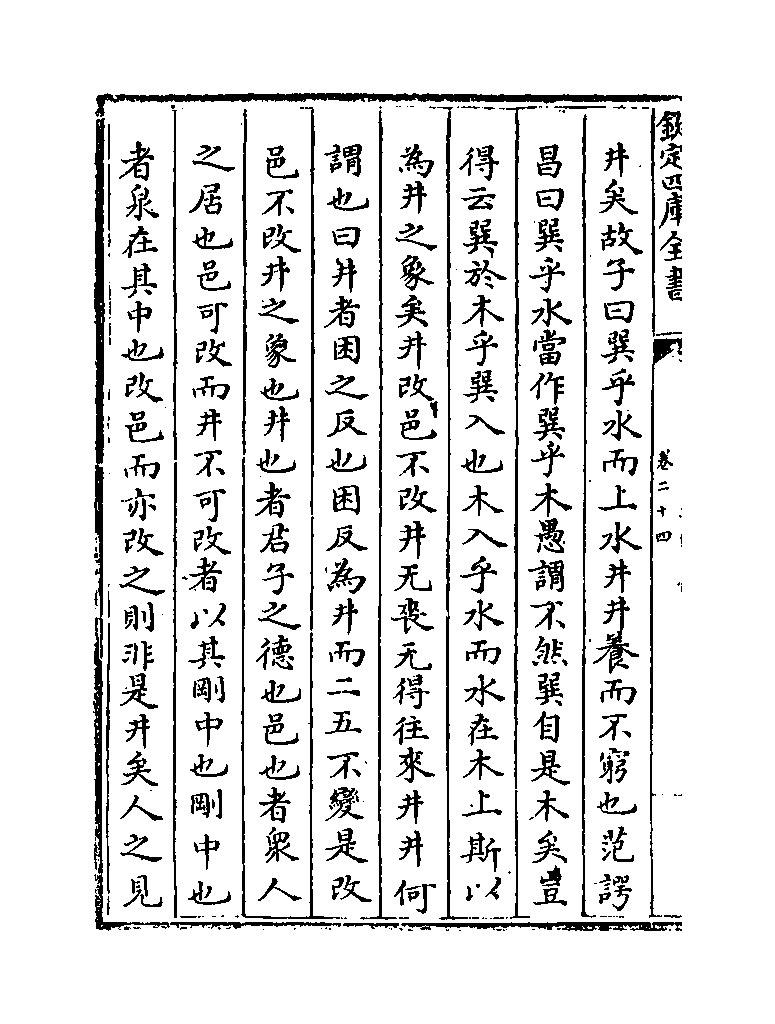 欽定四庫全書
卷二十四
井矣故子曰巽乎水而上水井井養而不窮也范諤
昌曰巽乎水當作巽乎木愚謂不然巽自是木矣豈
得云巽於木乎巽入也木入乎水而水在木上斯以
為井之象矣井改邑不改井无喪无得往來井井何
謂也曰井者困之反也困反為井而二五不變是改
邑不改井之象也井也者君子之德也邑也者衆人
之居也邑可改而井不可改者以其剛中也剛中也
者泉在其中也改邑而亦改之則非是井矣人之見